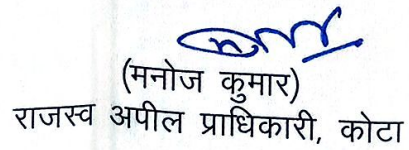 (मनोज कुमार)
राजस्व अपील प्राधिकारी, कोटा